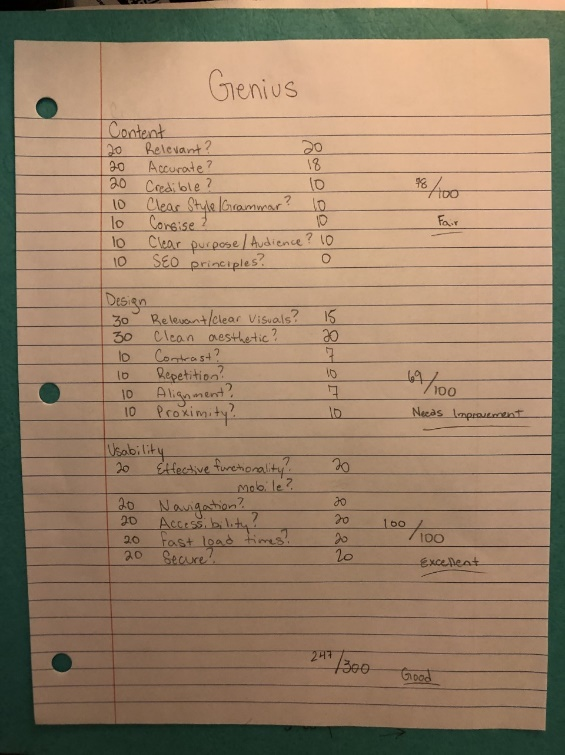 Genius
Content
20 Relevant? 20
20 Accurate? 18
20 Credible? 10 78/100
10 Clear Style/Grammar? 10
10 Consise? 10 Fair
10 Clear purpose/Audience? 10
10 SEO principles? 0
Design
30 Relevant/clear visuals? 15
30 Clean aesthetic? 20
10 Contrast? 7
10 Repetition? 10 69/100
10 Alignment? 7
10 Proximity? 10 Needs Improvement
Usability
20 Effective functionality? 20
mobile?
20 Navigation? 20
20 Accessibility? 20 100/100
20 Fast load times? 20
20 Secure? 20 Excellent
247/300 Good